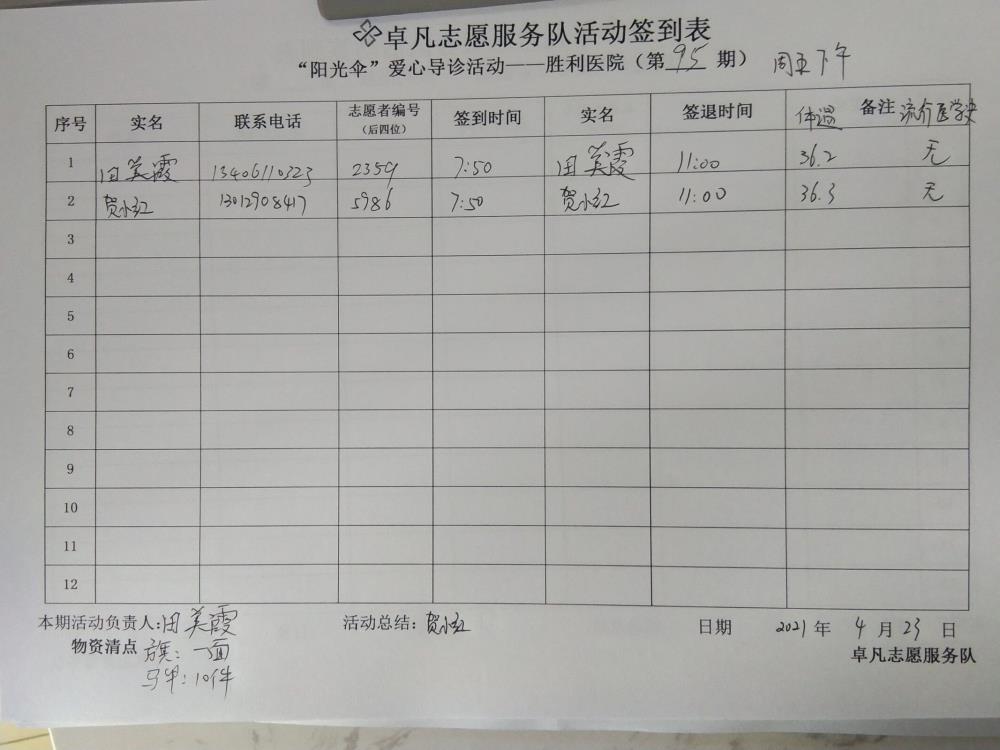 卓凡志愿服务队活动签到表
“阳光伞”爱心导诊活动——胜利医院（第 95 期） 周五下午
序号 实名 联系电话 志愿者编号（后四位） 签到时间 实名 签退时间 体温 备注 流行医学史
1 田美霞 13406110323 2359 7:50 田美霞 11:00 36.2 无
2 贺小红 13012908417 5986 7:50 贺小红 11:00 36.3 无
3
4
5
6
7
8
9
10
11
12
本期活动负责人:田美霞 活动总结：贺小红 日期 2021 年 4 月 23 日
物资清点 旗：一面 卓凡志愿服务队
马甲：10件